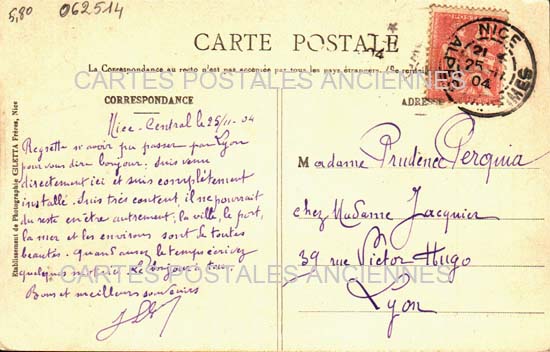 5,80 062514
CARTE POSTALE
La Correspondance au recto n'est pas acceptée par tous les pays étrangers. (Se
CORRESPONDANCE
ADRESSE
NICE
21
25
04
ALPES
MMES
04
Nice-Central le 25/11-04
Regrette n'avoir pu passer par Lyon
pour vous dire bonjour. Suis venu
directement ici et suis complètement
installé. Suis très content, il ne pourrait
du reste en être autrement, la ville, le port,
la mer et les environs sont de toutes
beautés. Quand aurez le temps écrivez
quelques mots. Le bonjour à tous.
Bons et meilleurs souvenirs
Madame Prudence Perquia
chez Madame Jacquier
39 rue Victor Hugo
Lyon
Etablissement de Photographie GILETTA Frères, Nice
CARTES POSTALES ANCIENNES
CARTES POSTALES ANCIENNES